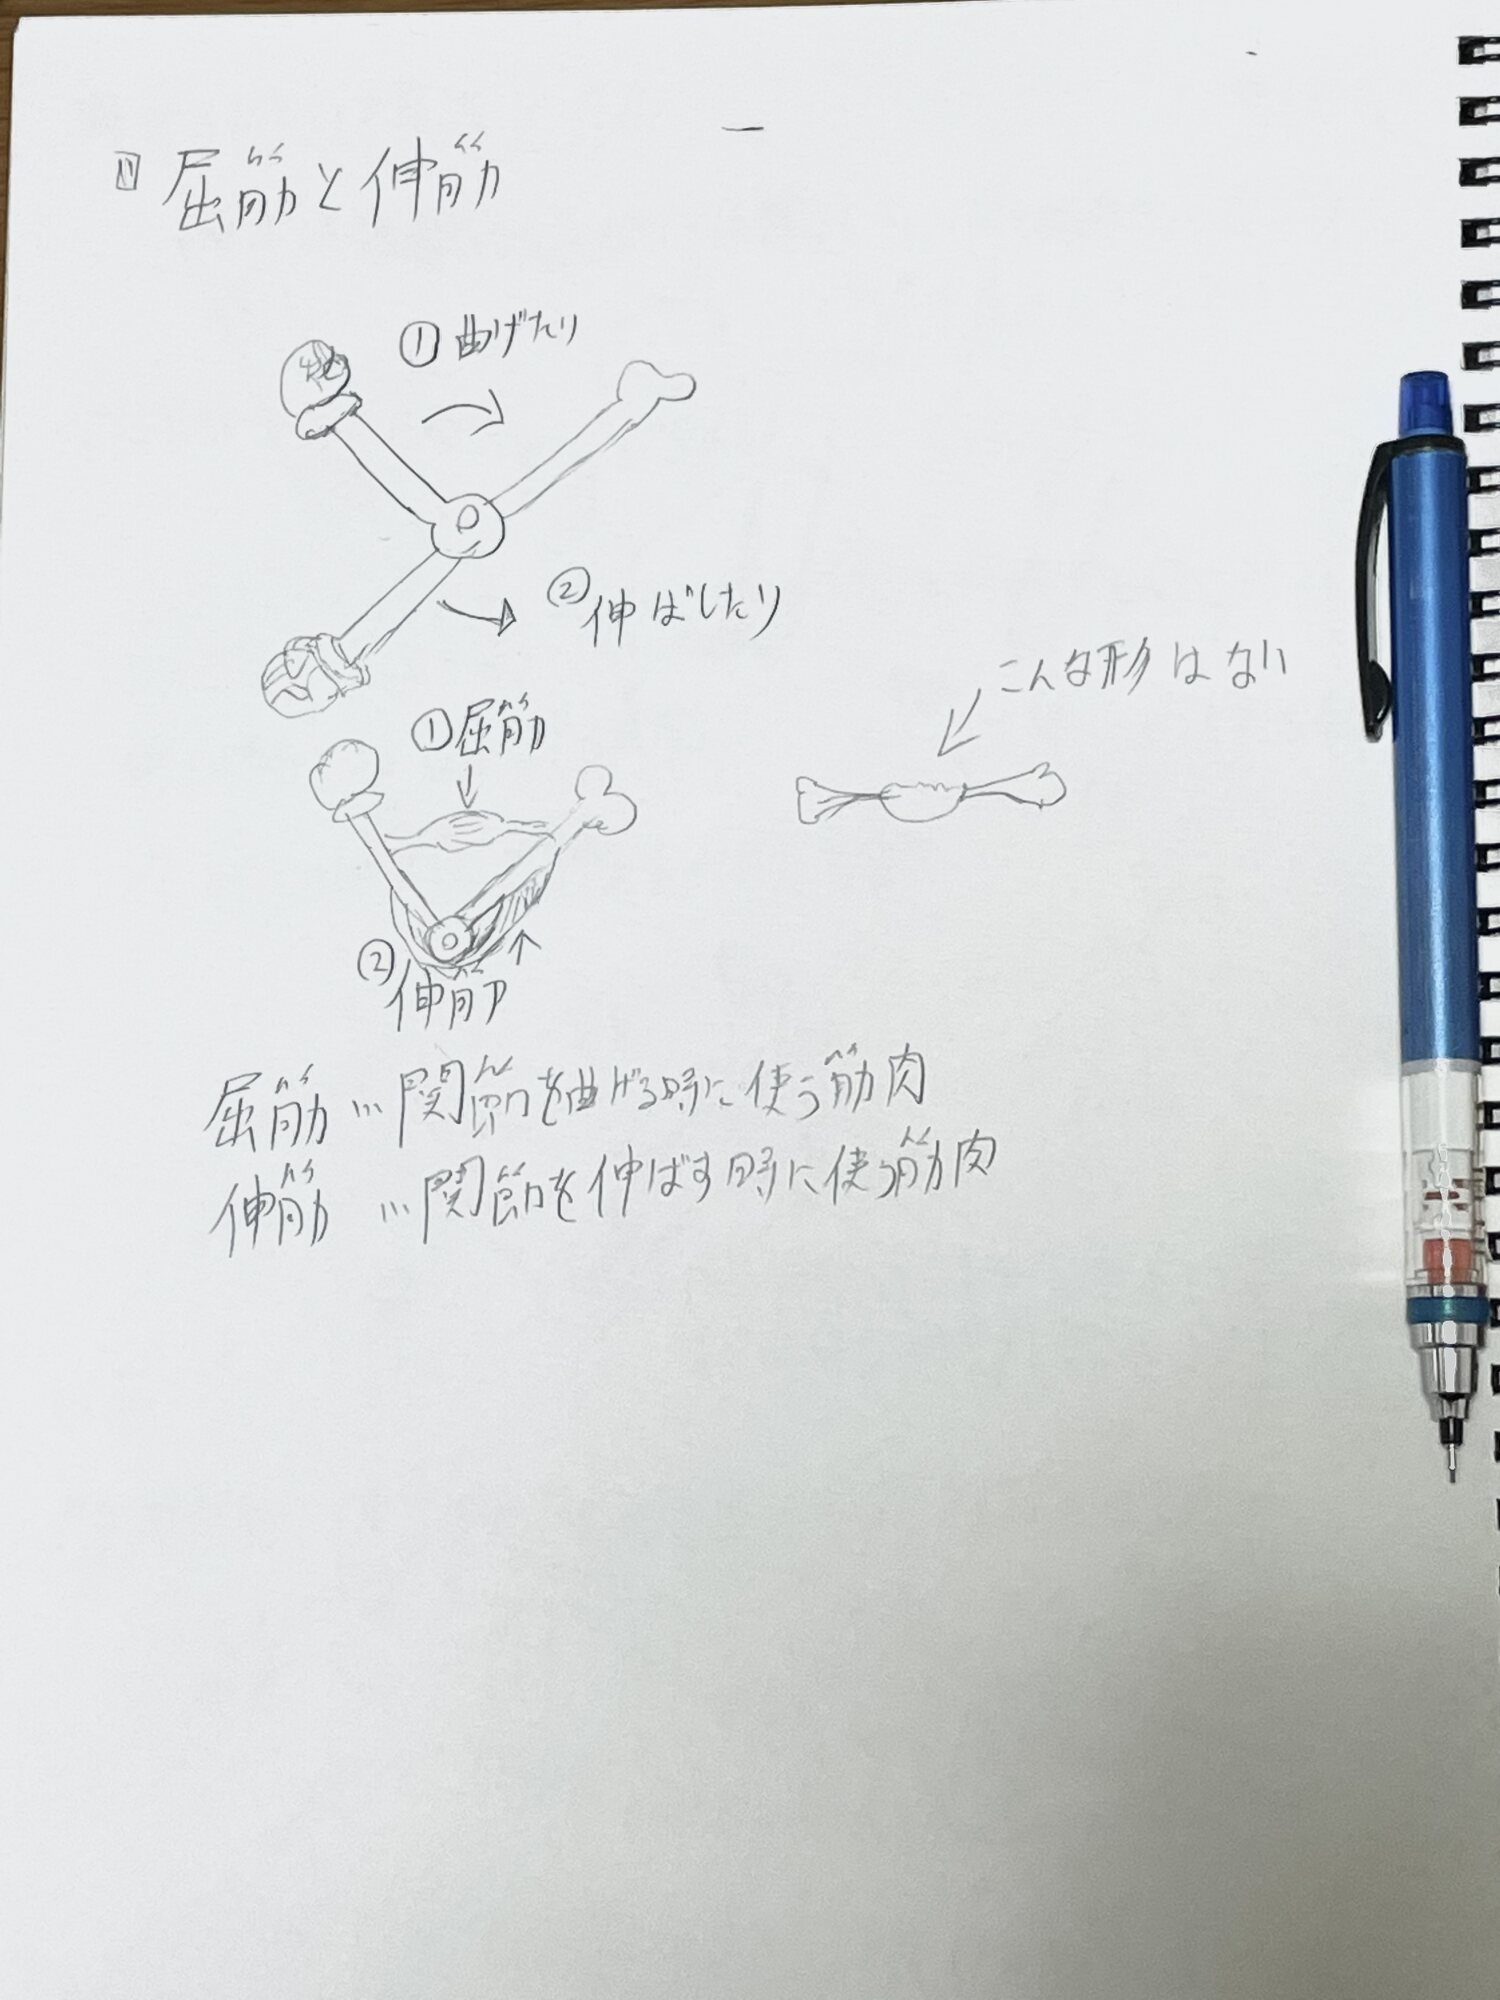 屈筋と伸筋
① 曲げたり
② 伸ばしたり
こんな形はない
① 屈筋
② 伸筋
屈筋…関節を曲げる時に使う筋肉
伸筋…関節を伸ばす時に使う筋肉